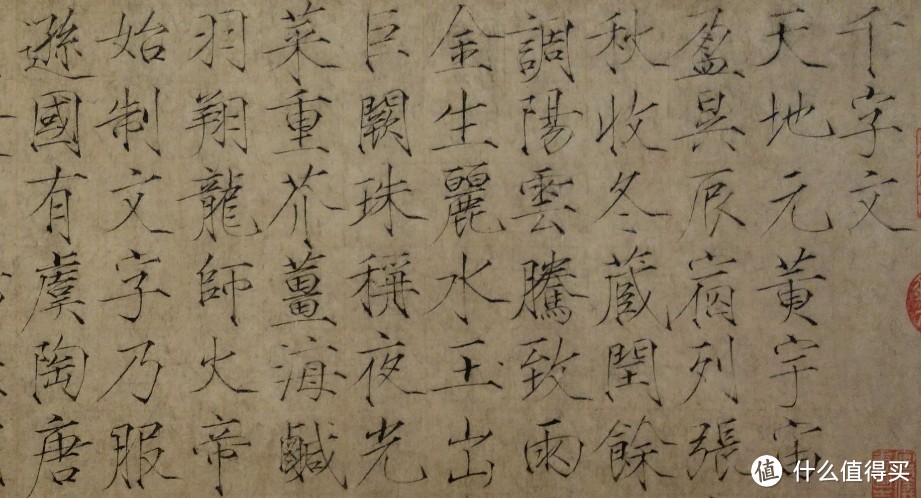 千字文
天地元黃宇宙
盈昃辰宿列張
秋收冬藏閏餘
調陽雲騰致雨
金生麗水玉出
巨闕珠稱夜光
菜重芥薑海鹹
羽翔龍師火帝
始制文字乃服
遜國有虞陶唐
值 什么值得买